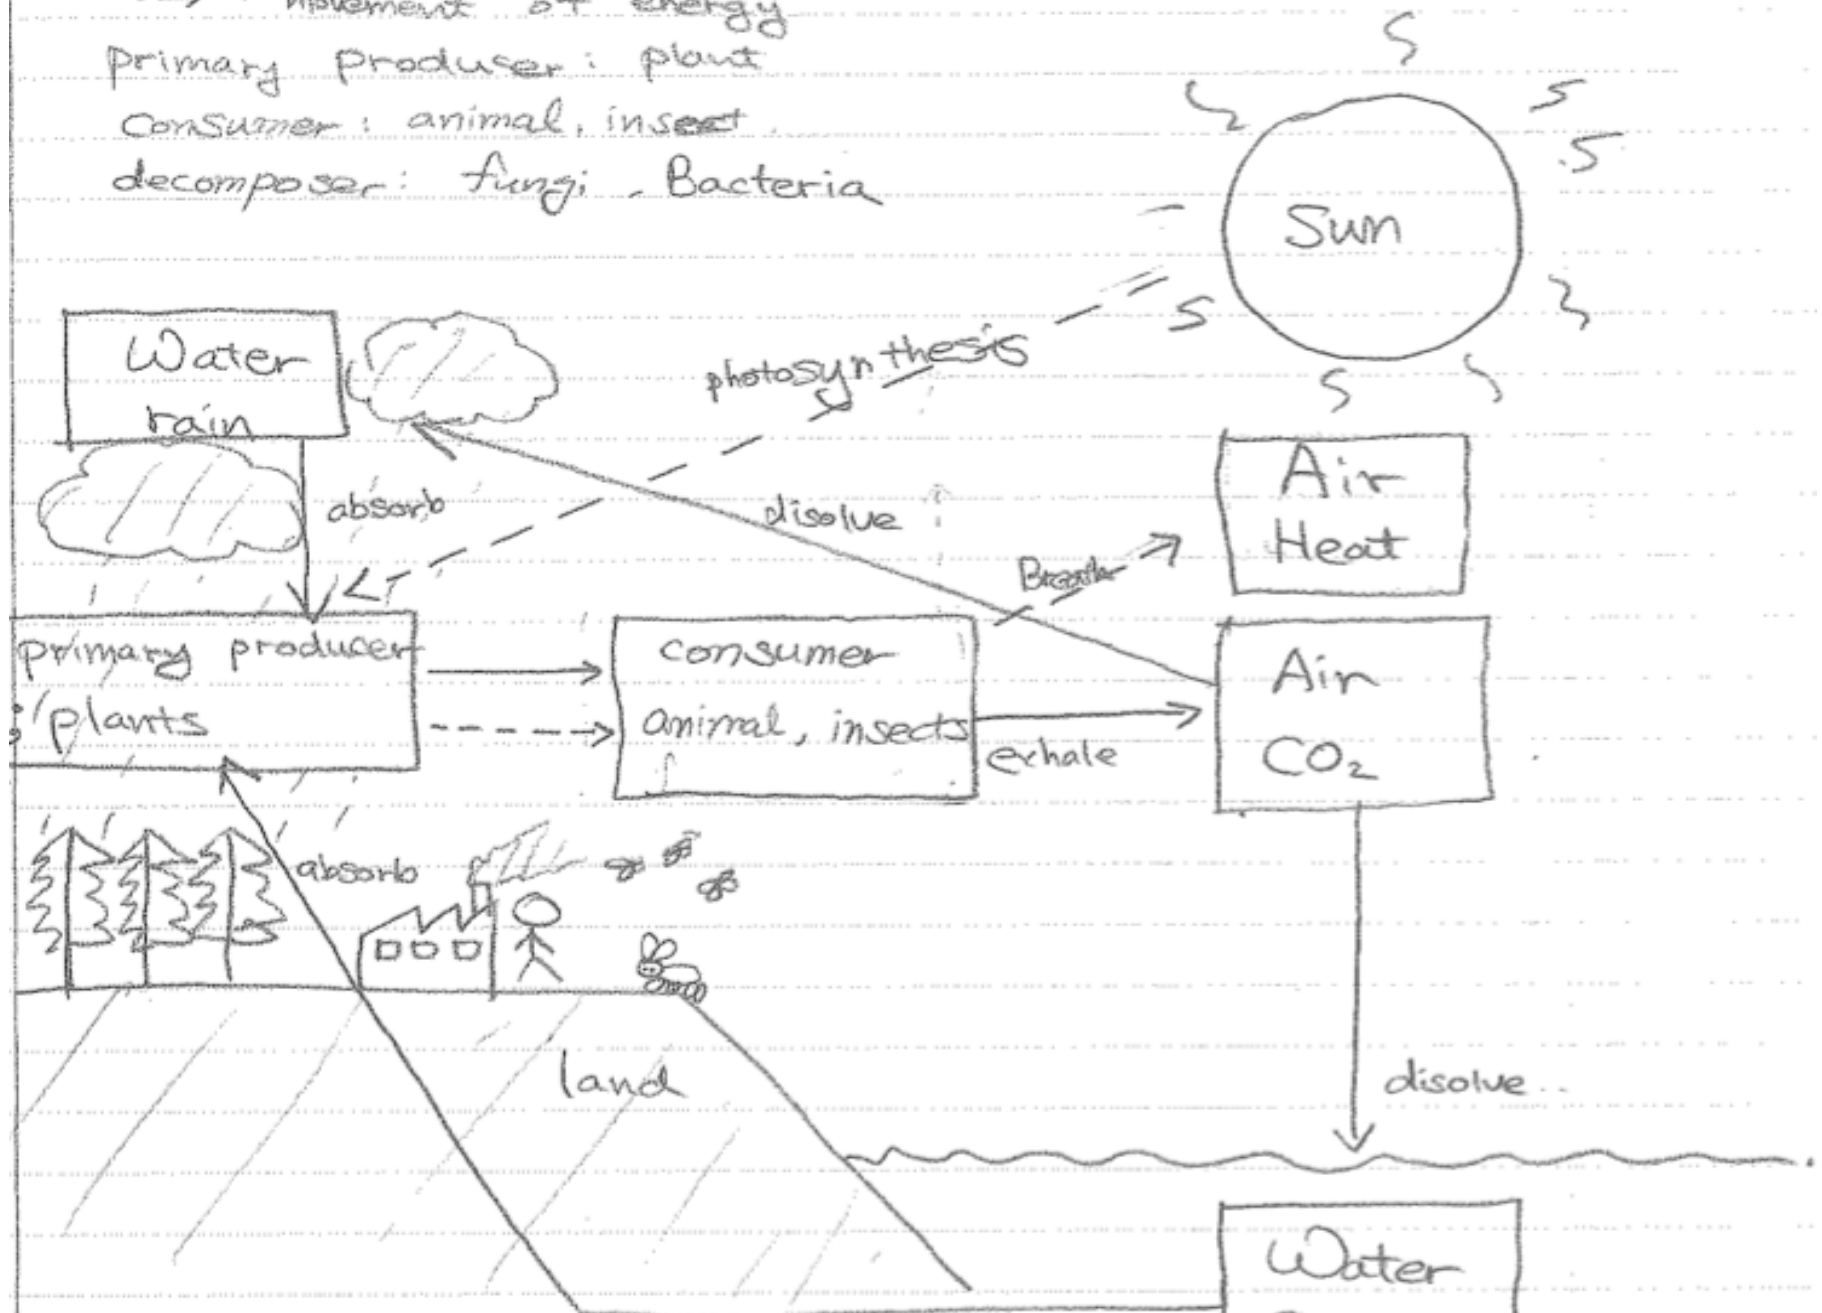 movement of energy
primary producer: plant
consumer: animal, insect
decomposer: fungi, Bacteria
Sun
Water
rain
photosynthesis
absorb
disolve
Air
Heat
Breath
primary producer
plants
consumer
animal, insects
exhale
Air
CO₂
absorb
land
disolve
Water